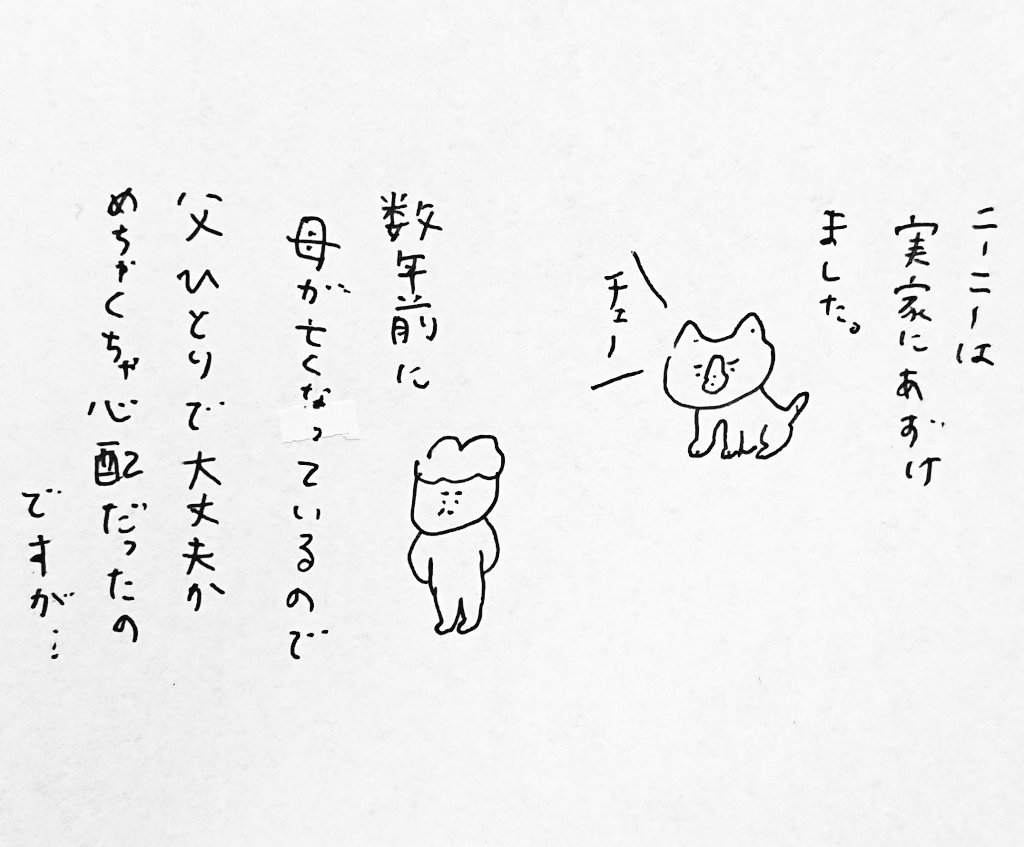 ニーニーは
実家にあずけ
ました。
チェー
数年前に
母が亡くなっているので
父ひとりで大丈夫か
めちゃくちゃ心配だったの
ですが…